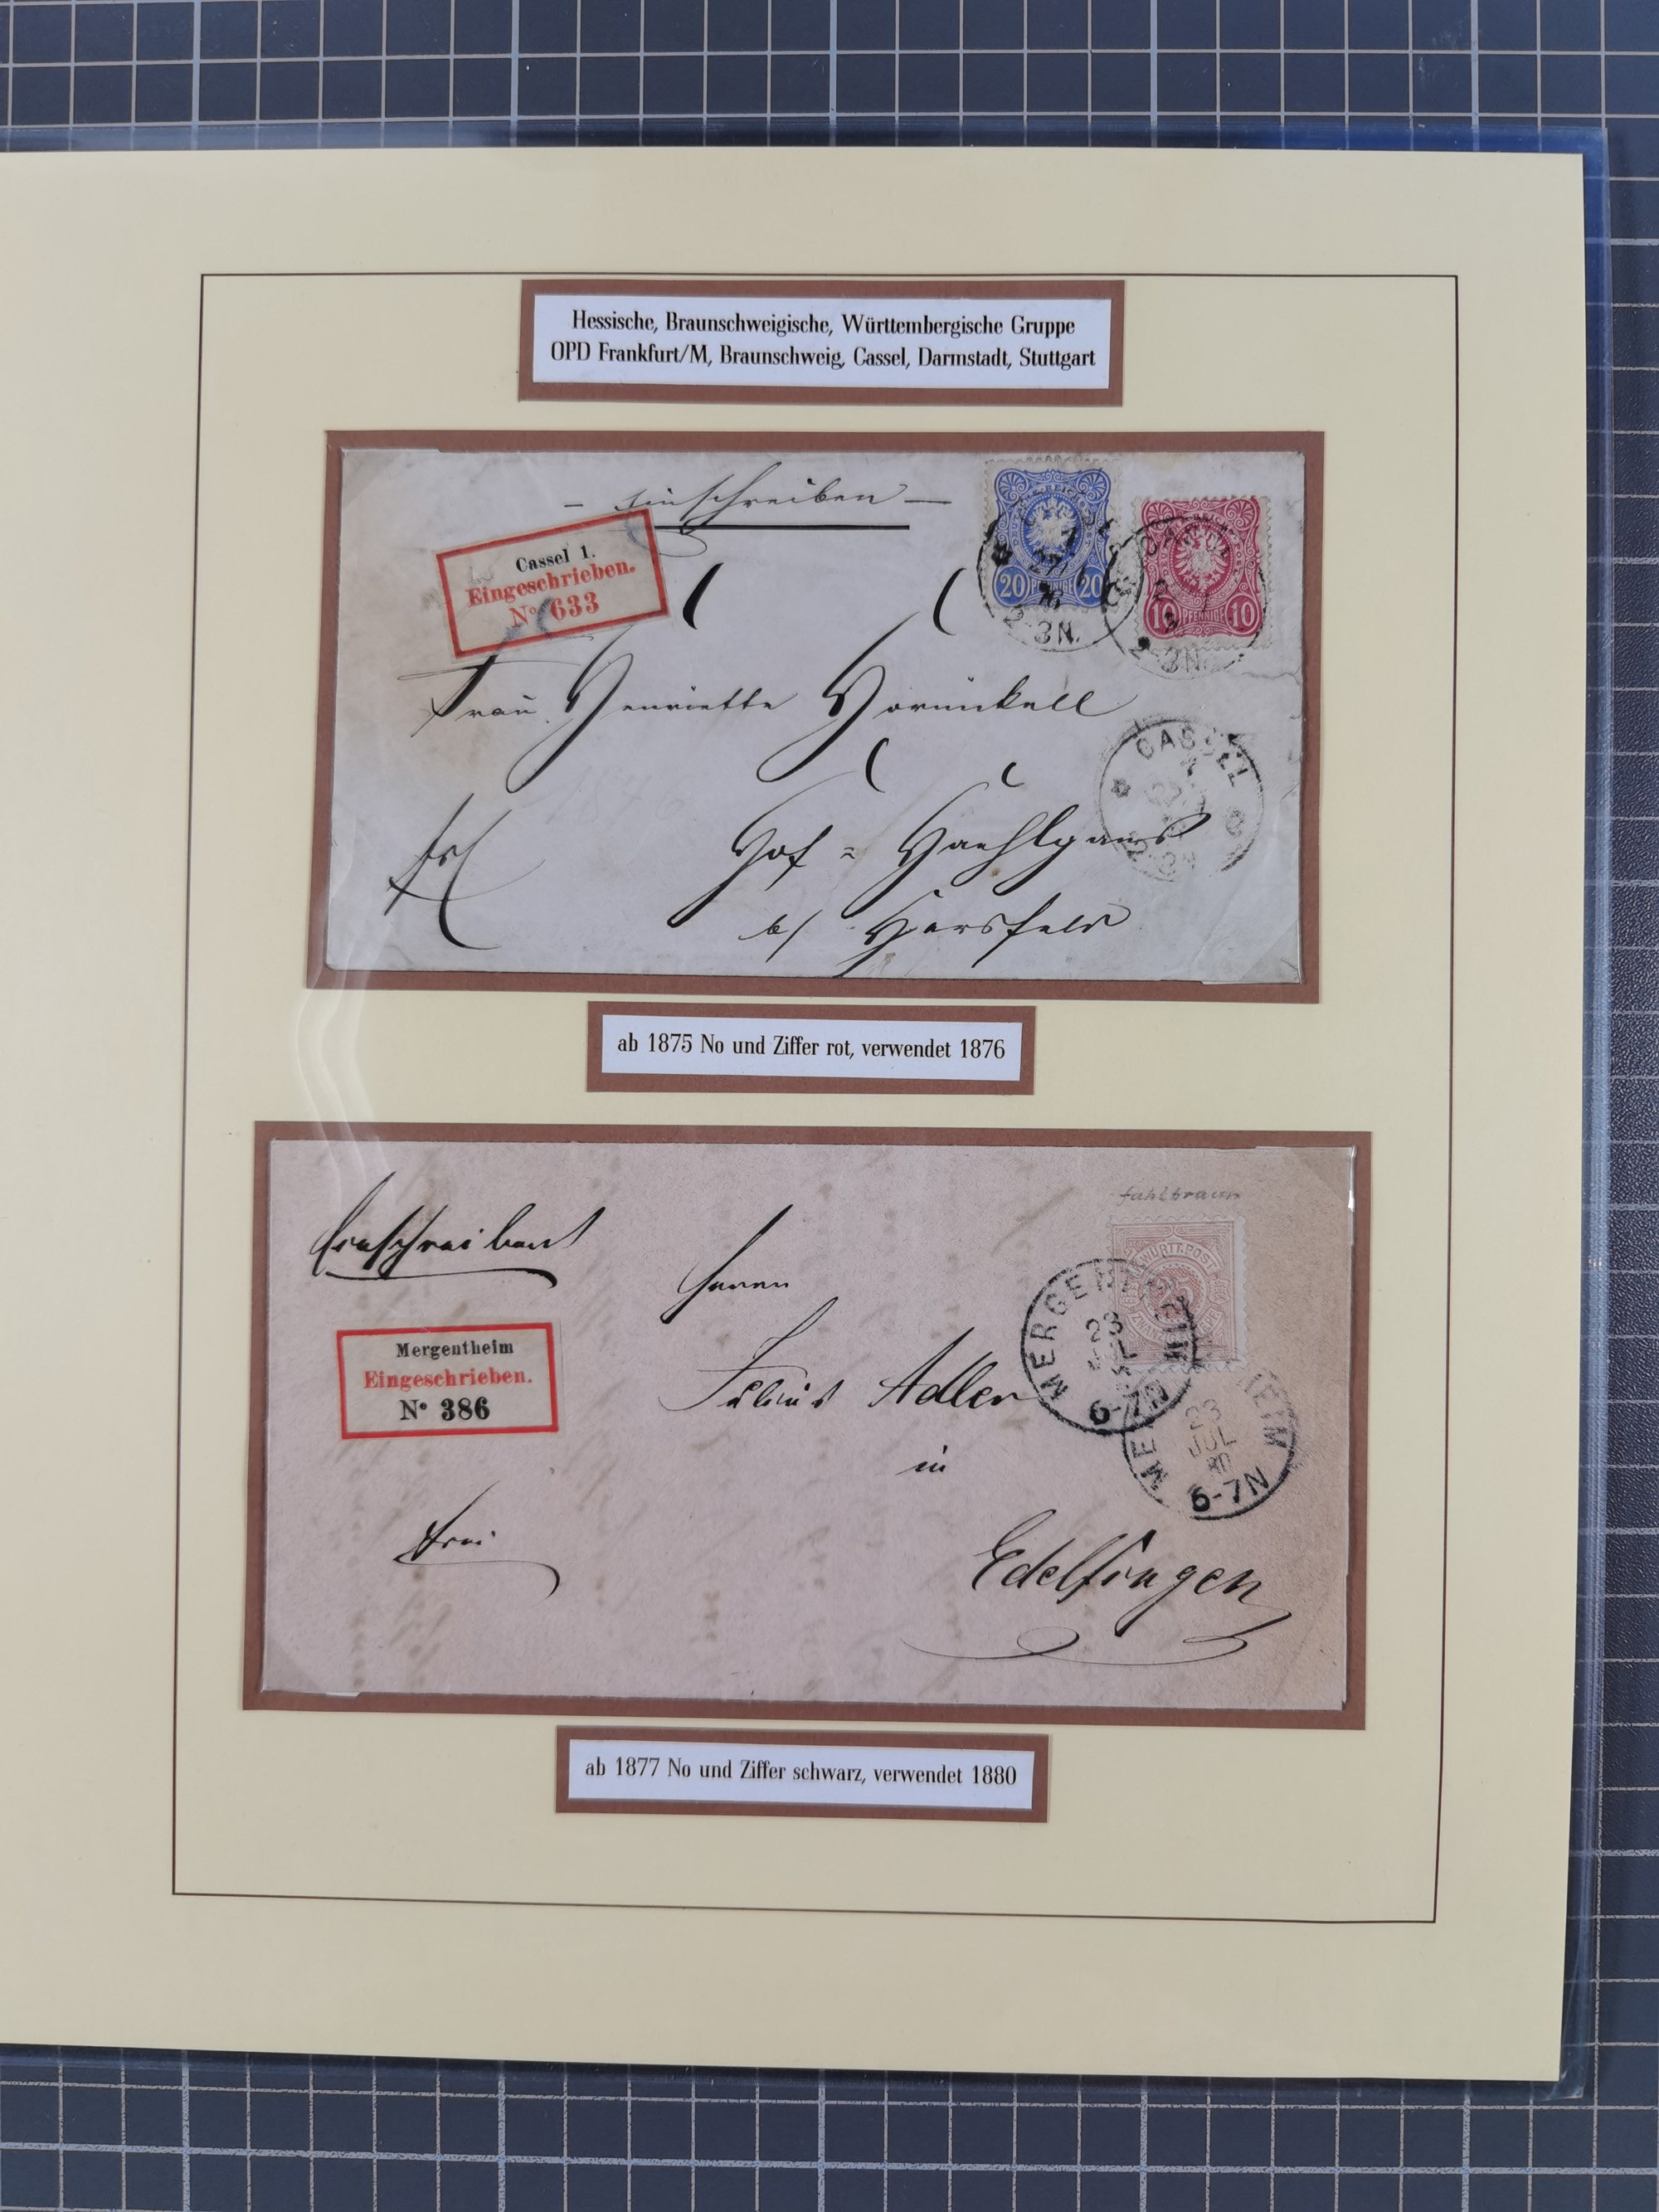 Hessische, Braunschweigische, Württembergische Gruppe
OPD Frankfurt/M, Braunschweig, Cassel, Darmstadt, Stuttgart
- Einschreiben -
Cassel 1.
Eingeschrieben.
No 633
20 PFENNIGE 20
10 PFENNIGE 10
2-3N.
2-3N
Frau Henriette
CASSEL
Hof =
b/ Hersfeld
ab 1875 No und Ziffer rot, verwendet 1876
fahlbraun
Einschreiben
WÜRTT. POST
25
Herrn
MERGENTHEIM
23
JUL
6-7N
Mergentheim
Eingeschrieben.
No 386
Julius Adler
23
JUL
80
6-7N
in
frei
Edelfingen
ab 1877 No und Ziffer schwarz, verwendet 1880